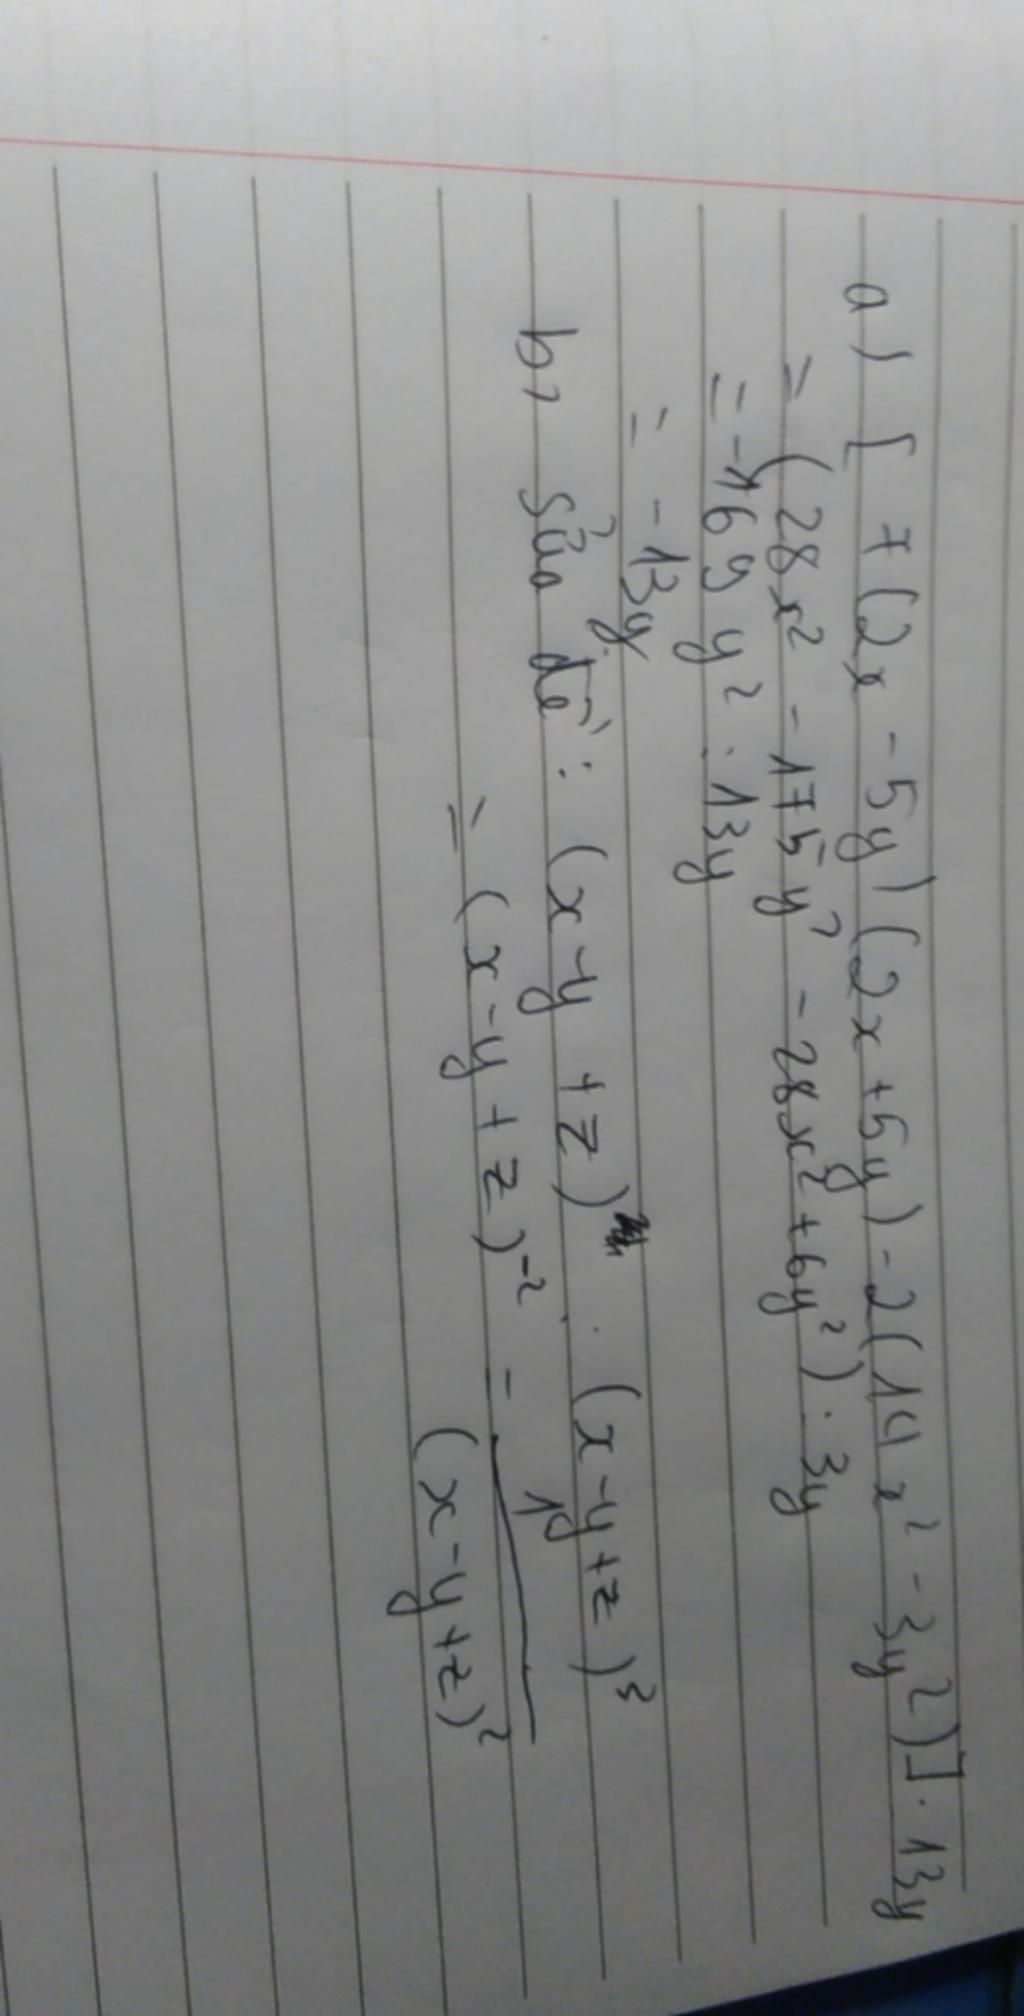 a) [7(2x - 5y)(2x + 5y) - 2(14x² - 3y²)] : 13y
= (28x² - 175y² - 28x² + 6y²) : 3y
= -169y² : 13y
= -13y
b) Sửa đề : (x - y + z) : (x - y + z)³
= (x - y + z)⁻² = 1/(x - y + z)²